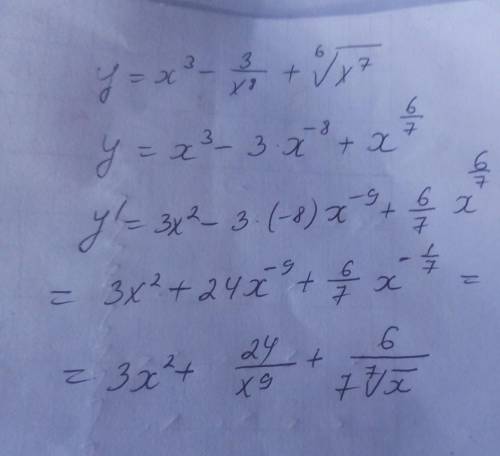 y = x³ - 3/x⁸ + ⁶√x⁷
y = x³ - 3 · x⁻⁸ + x^(6/7)
y' = 3x² - 3 · (-8) x⁻⁹ + 6/7 x^(6/7)
= 3x² + 24x⁻⁹ + 6/7 x^(-1/7) =
= 3x² + 24/x9 + 6/(7 ⁷√x)